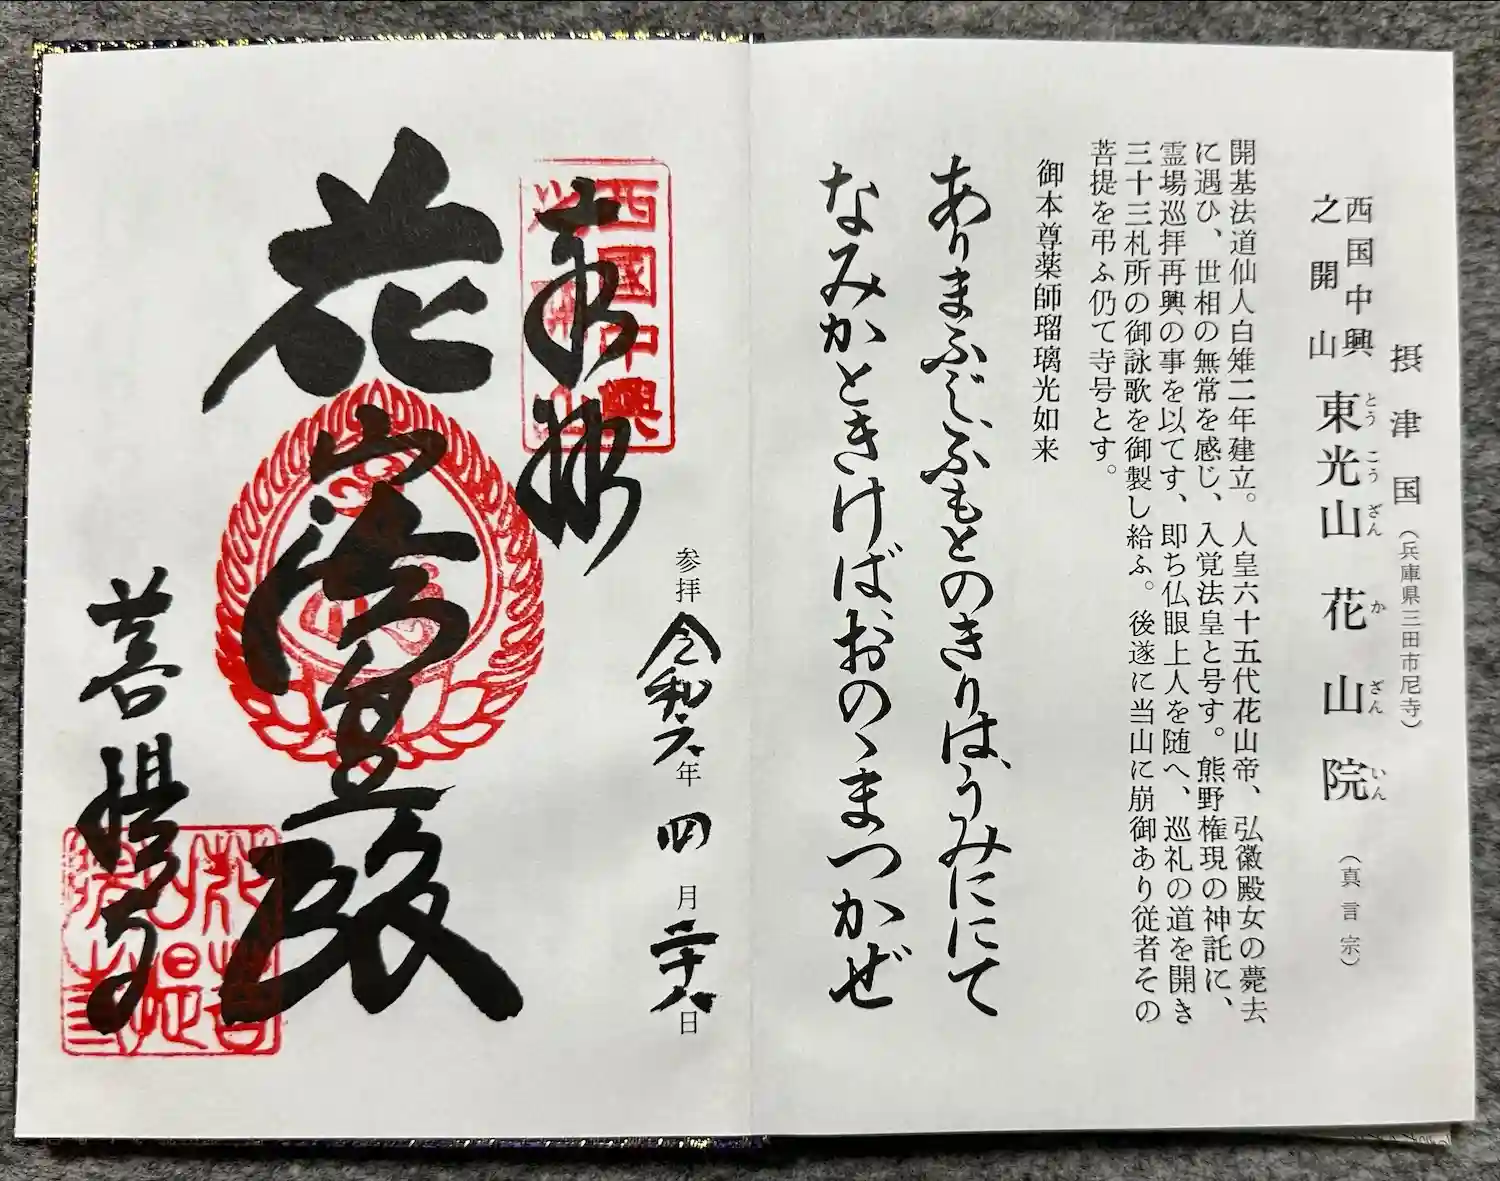 摂津国（兵庫県三田市尼寺）
西国中興
之開山
東光山 花山院（真言宗）
とうこうざん かざんいん
開基法道仙人白雉二年建立。人皇六十五代花山帝、弘徽殿女の薨去
に遇ひ、世相の無常を感じ、入覚法皇と号す。熊野権現の神託に、
霊場巡拝再興の事を以てす、即ち仏眼上人を随へ、巡礼の道を開き
三十三札所の御詠歌を御製し給ふ。後遂に当山に崩御あり従者その
菩提を弔ふ仍て寺号とす。
御本尊薬師瑠璃光如来
ありまふじふもとのきりは、うみににて
なみかときけばおのゝまつかぜ
参拝 令和六年 四月二十八日
奉拝
西國中興
花山法皇殿
菩提寺